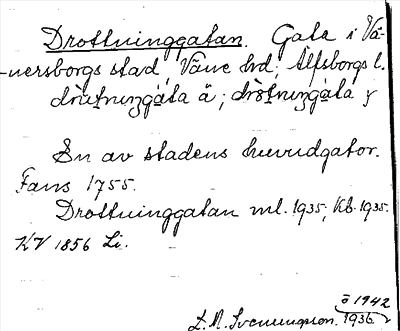 Drottninggatan. Gata i Vä-
nersborgs stad, Väne hd; Älfsborgs l.
drὰtningàta ä; dròtningàta y
En av stadens huvudgator.
Fanns 1755.
Drottninggatan ml. 1935; Kb. 1935.
KV 1856 Li.
ä 1942
L. M. Svenungson. 1936